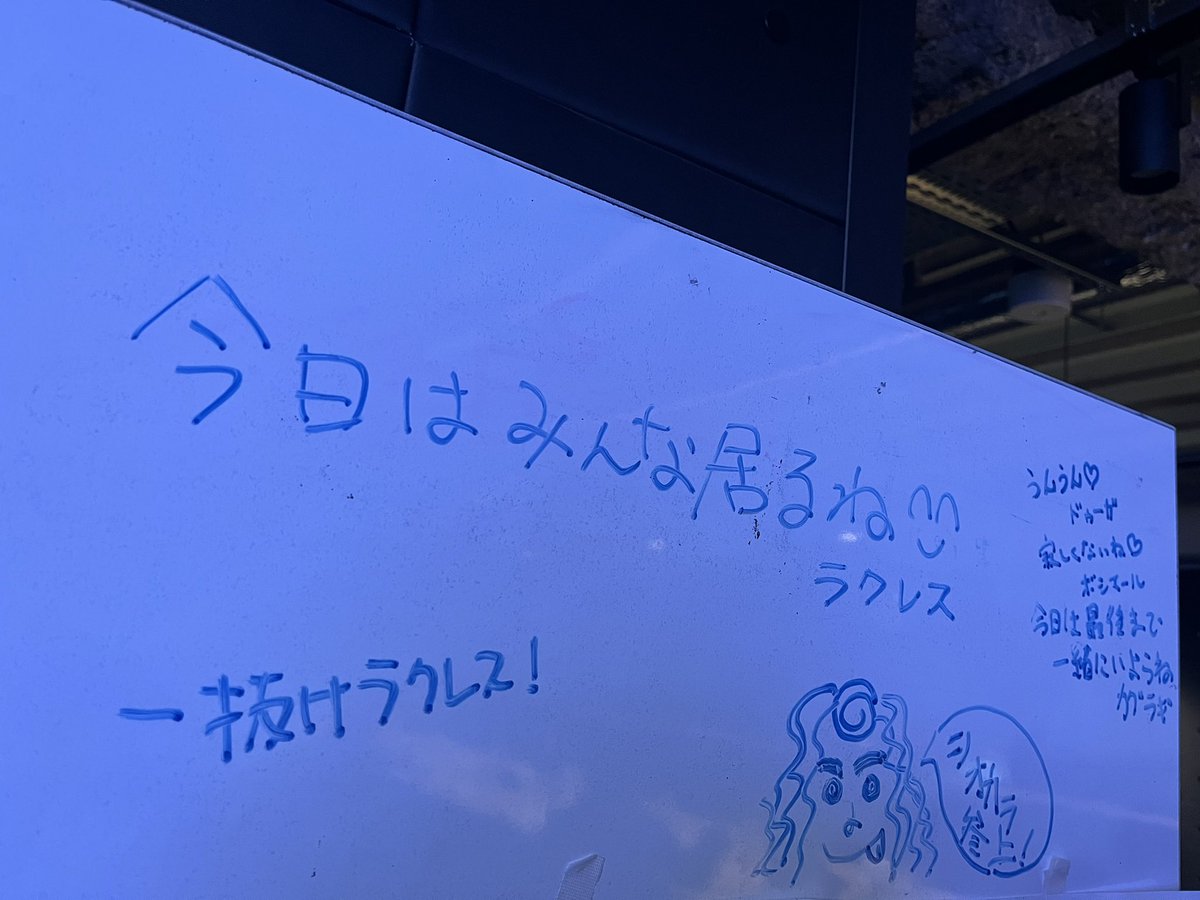 今日はみんな居るね
ラクレス
一抜けラクレス!
うんうん♡
ドゥーガ
寂しくないね♡
ボシマール
今日は最後まで
一緒にいようね
カグラギ
参上!